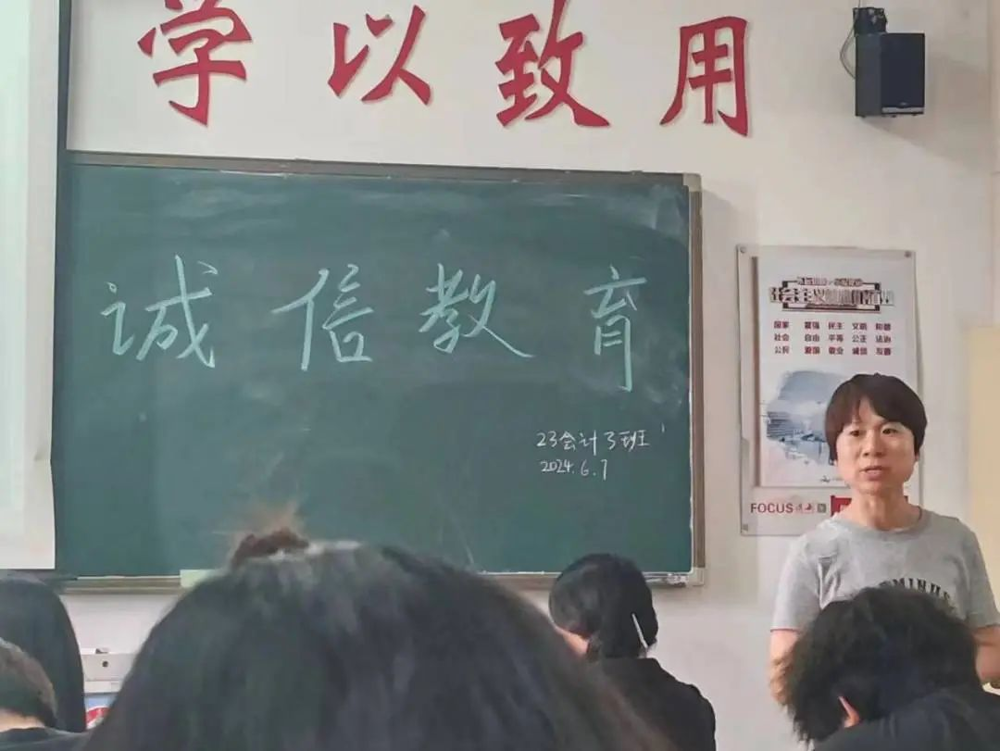 学以致用
诚信教育
23会计3班
2024.6.7
国家 富强 民主 文明 和谐
社会 自由 平等 公正 法治
公民 爱国 敬业 诚信 友善
FOCUS